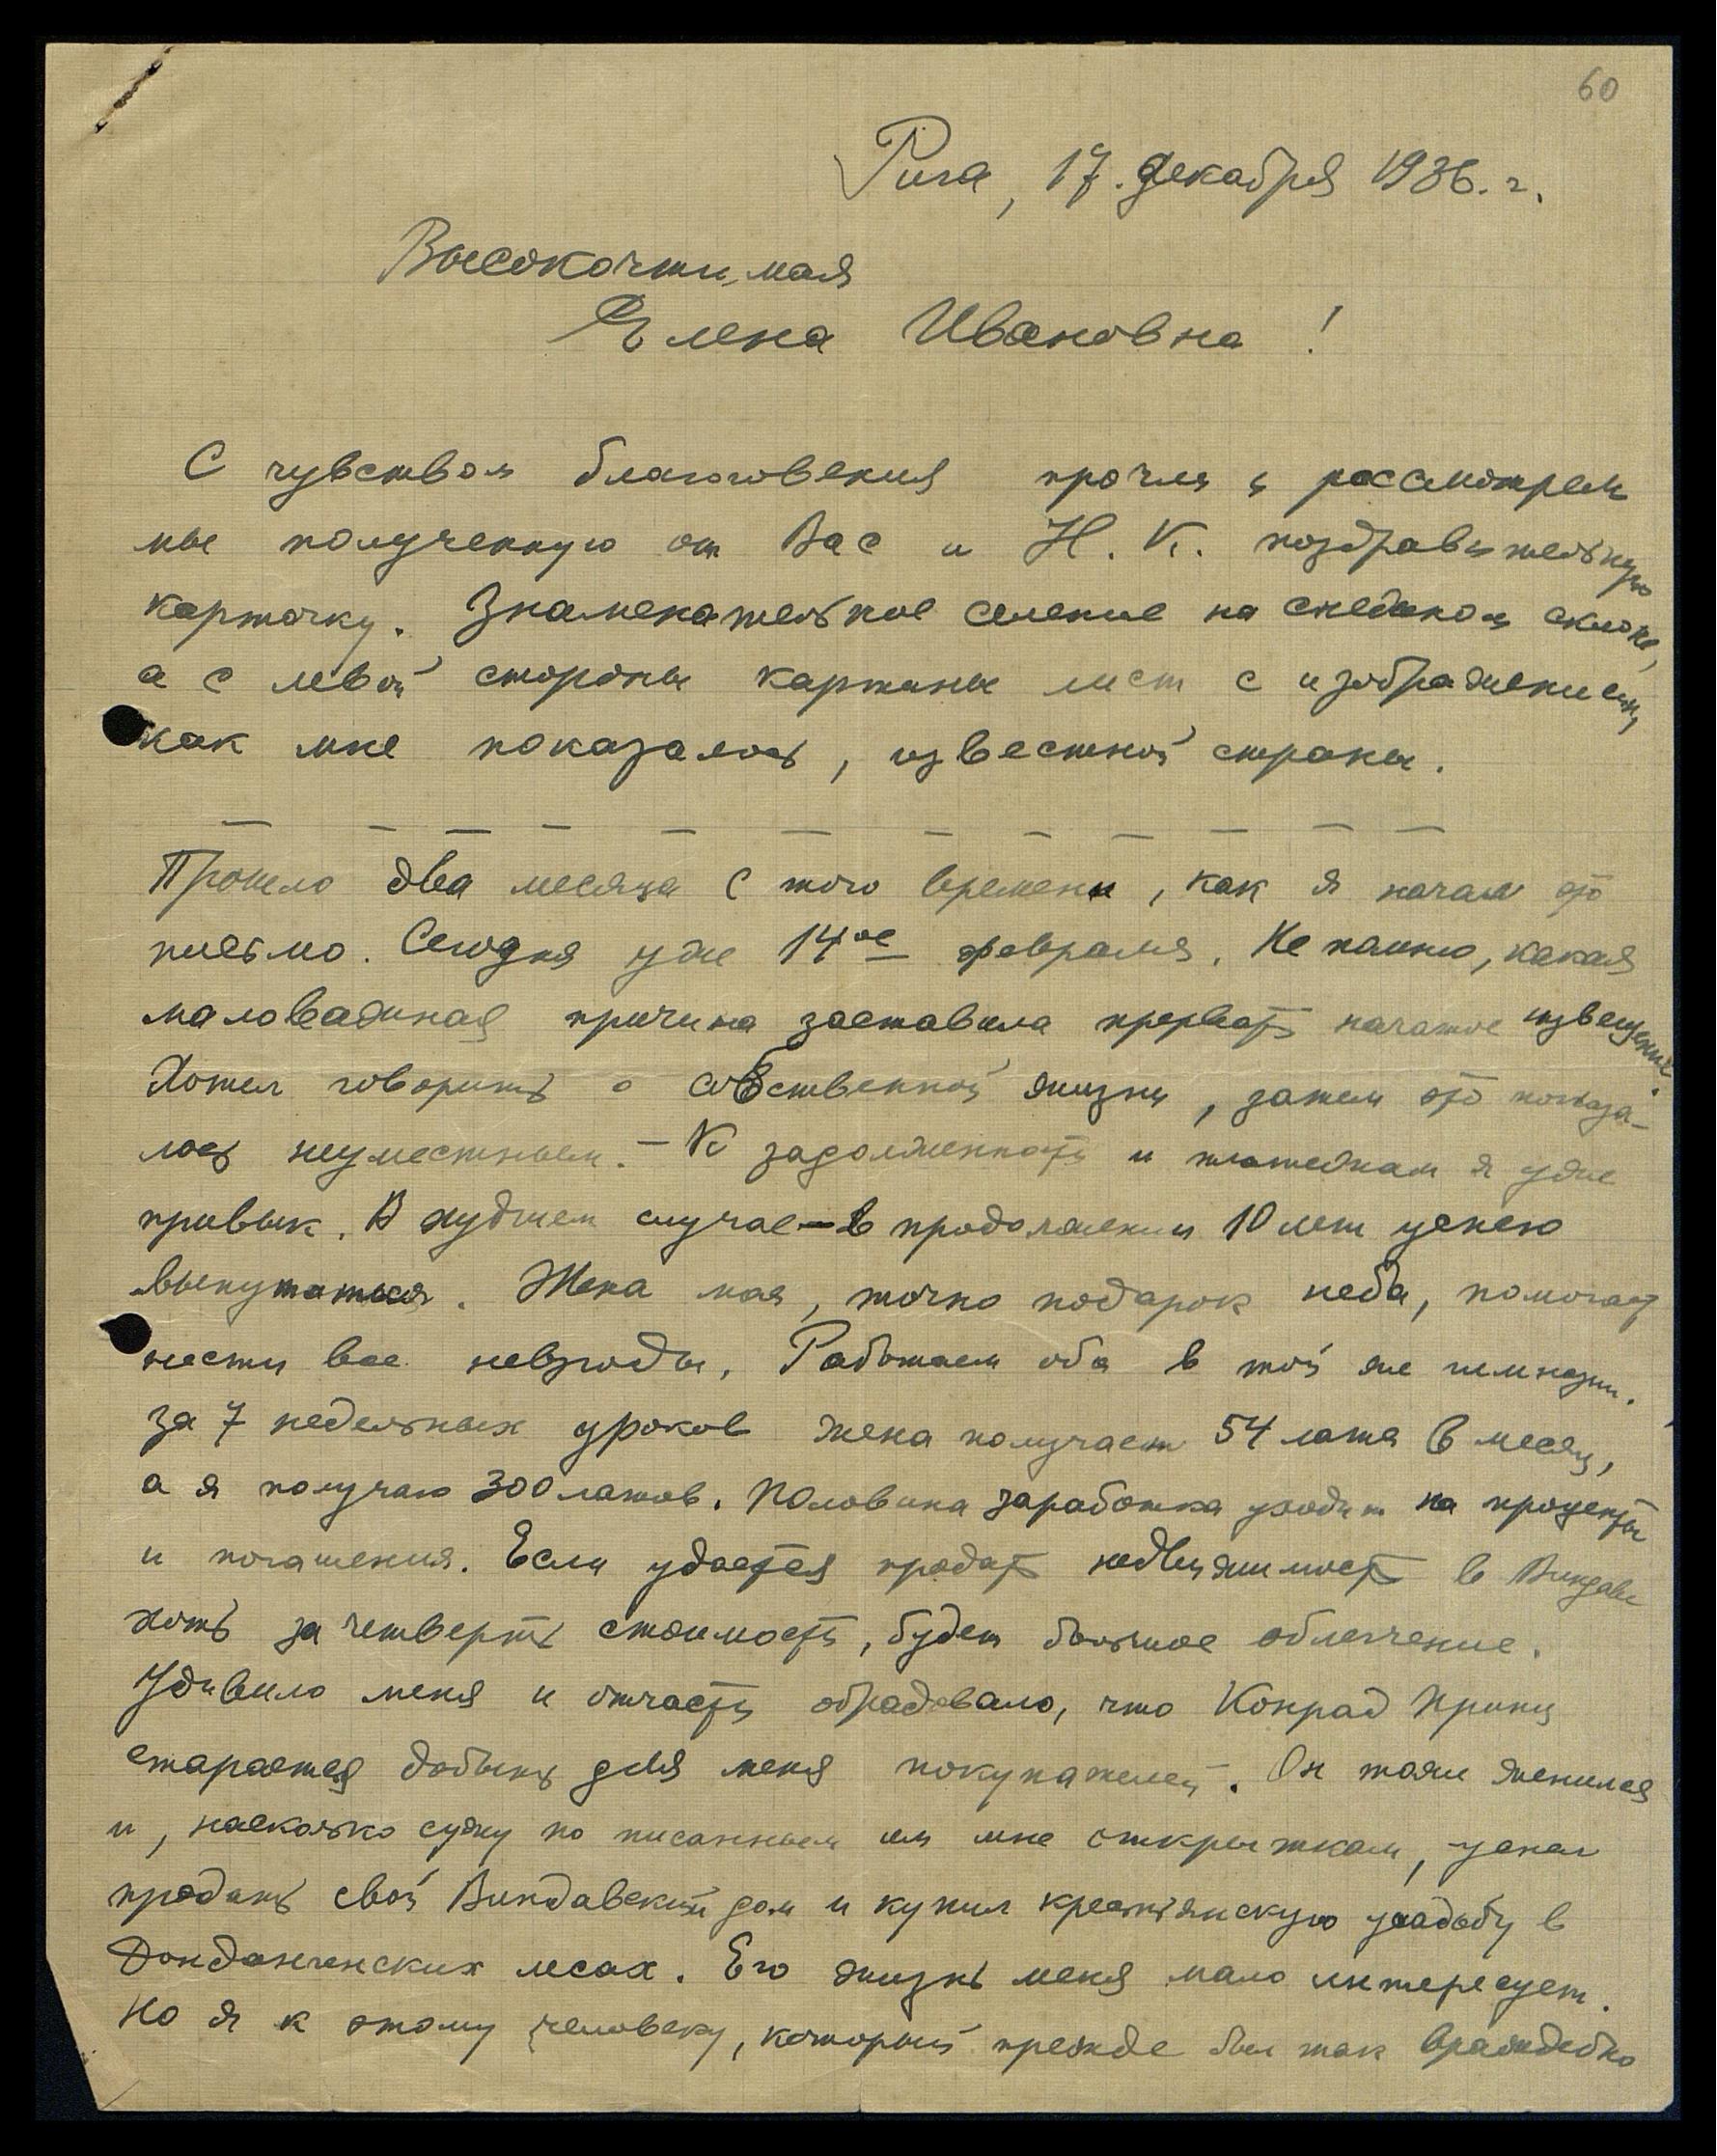 60
Рига, 17. декабря 1936. г.
Высокочтимая
Елена Ивановна!
С чувством благоговения прочли и рассмотрели
мы полученную от Вас и Н. К. поздравительную
карточку. Знаменательное селение на снежном склоне,
а с левой стороны картины лист с изображением,
как мне показалось, известной страны.
Прошло два месяца с того времени, как я начал это
письмо. Сегодня уже 14ое февраля. Не помню, какая
маловажная причина заставила прервать начатое извещение.
Хотел говорить о собственной жизни, затем это показа-
лось неуместным. - К задолженности и платежам я уже
привык. В худшем случае - в продолжении 10 лет успею
выпутаться. Жена моя, точно подарок неба, помогает
нести все невзгоды. Работаем оба в той же гимназии.
За 7 недельных уроков жена получает 54 лата в месяц,
а я получаю 300 латов. Половина заработка уходит на проценты
и погашения. Если удастся продать недвижимость в Виндаве
хоть за четверть стоимости, будет большое облегчение.
Удивило меня и отчасти обрадовало, что Конрад Принц
старается добыть для меня покупателей. Он тоже женился
и, насколько сужу по писанным им мне открыткам, успел
продать свой Виндавский дом и купил крестьянскую усадьбу в
Дондангенских лесах. Его жизнь меня мало интересует.
Но я к этому человеку, который прежде был так враждебно